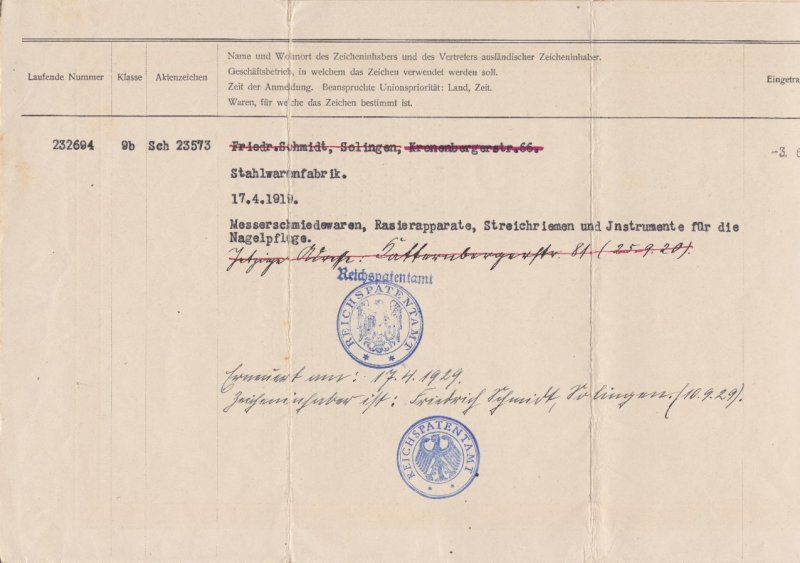 Laufende Nummer
Klasse
Aktenzeichen
Name und Wohnort des Zeicheninhabers und des Vertreters ausländischer Zeicheninhaber.
Geschäftsbetrieb, in welchem das Zeichen verwendet werden soll.
Zeit der Anmeldung. Beanspruchte Unionspriorität: Land, Zeit.
Waren, für welche das Zeichen bestimmt ist.
Eingetra
232694 9b Sch 23573 Friedr.Schmidt, Solingen, Kronenbergerstr.66.
-3. 6
Stahlwarenfabrik.
17.4.1919.
Messerschmiedewaren, Rasierapparate, Streichriemen und Jnstrumente für die
Nagelpflege.
Jetzige Adresse: Katternbergerstr. 81 (25.9.20).
Reichspatentamt
REICHSPATENTAMT
Erneuert am: 17.4.1929.
Zeicheninhaber ist: Friedrich Schmidt, Solingen. (10.9.29).
REICHSPATENTAMT